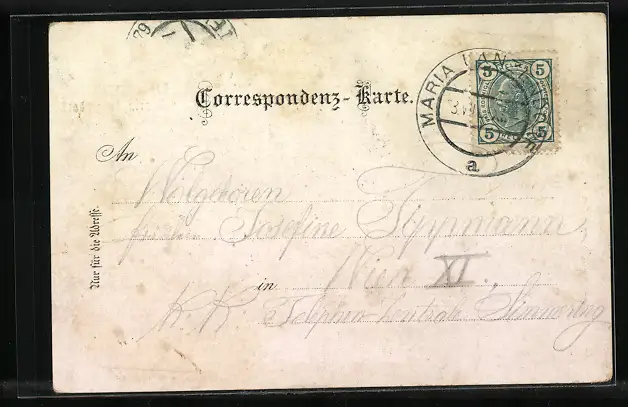 Correspondenz-Karte.
MARIA LANZENDORF
a
5 5
5 5
An
Wolgeboren
Josefine Tippmann
in Wien XI.,
K. K. Telephon-Centrale Simmering
Nur für die Adresse.